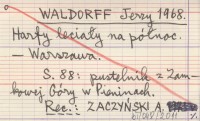 WALDORFF Jerzy 1968.
Harfy leciały na północ.
— Warszawa.
S. 88: pustelnik z Zam-
kowej Góry w Pieninach.
Rec.: ZACZYŃSKI A.